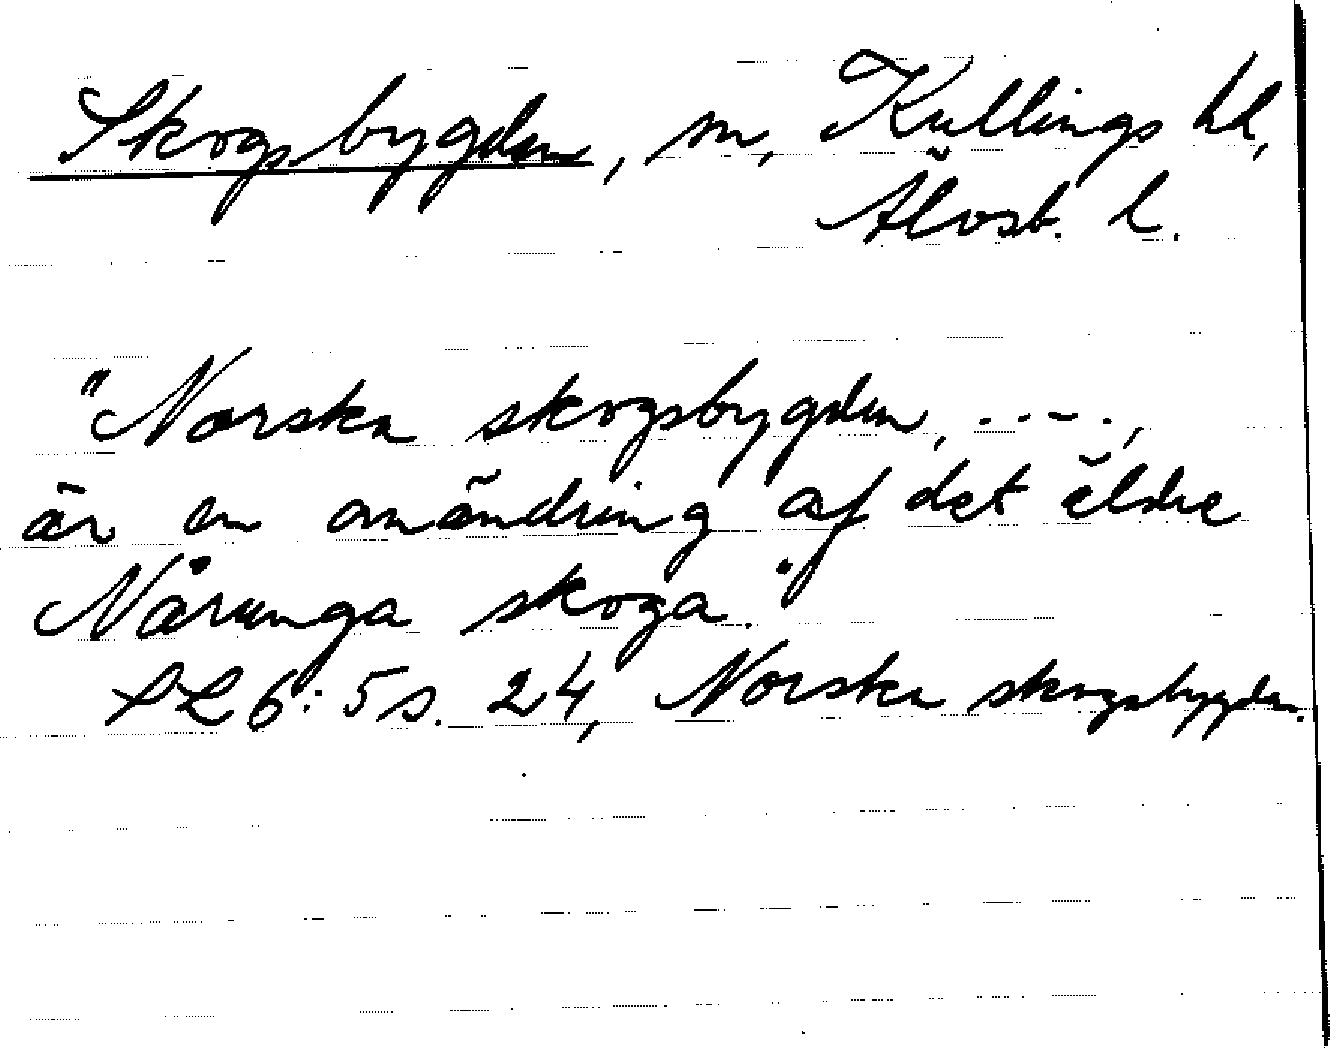 Skogsbygden, sn, Kullings hd,
Älvsb. l.
"Norska skogsbygden, . - - - . ,
är en omändring af det äldre
Nårunga skoga."
SL 6:5 s. 24, Norska skogsbygden.